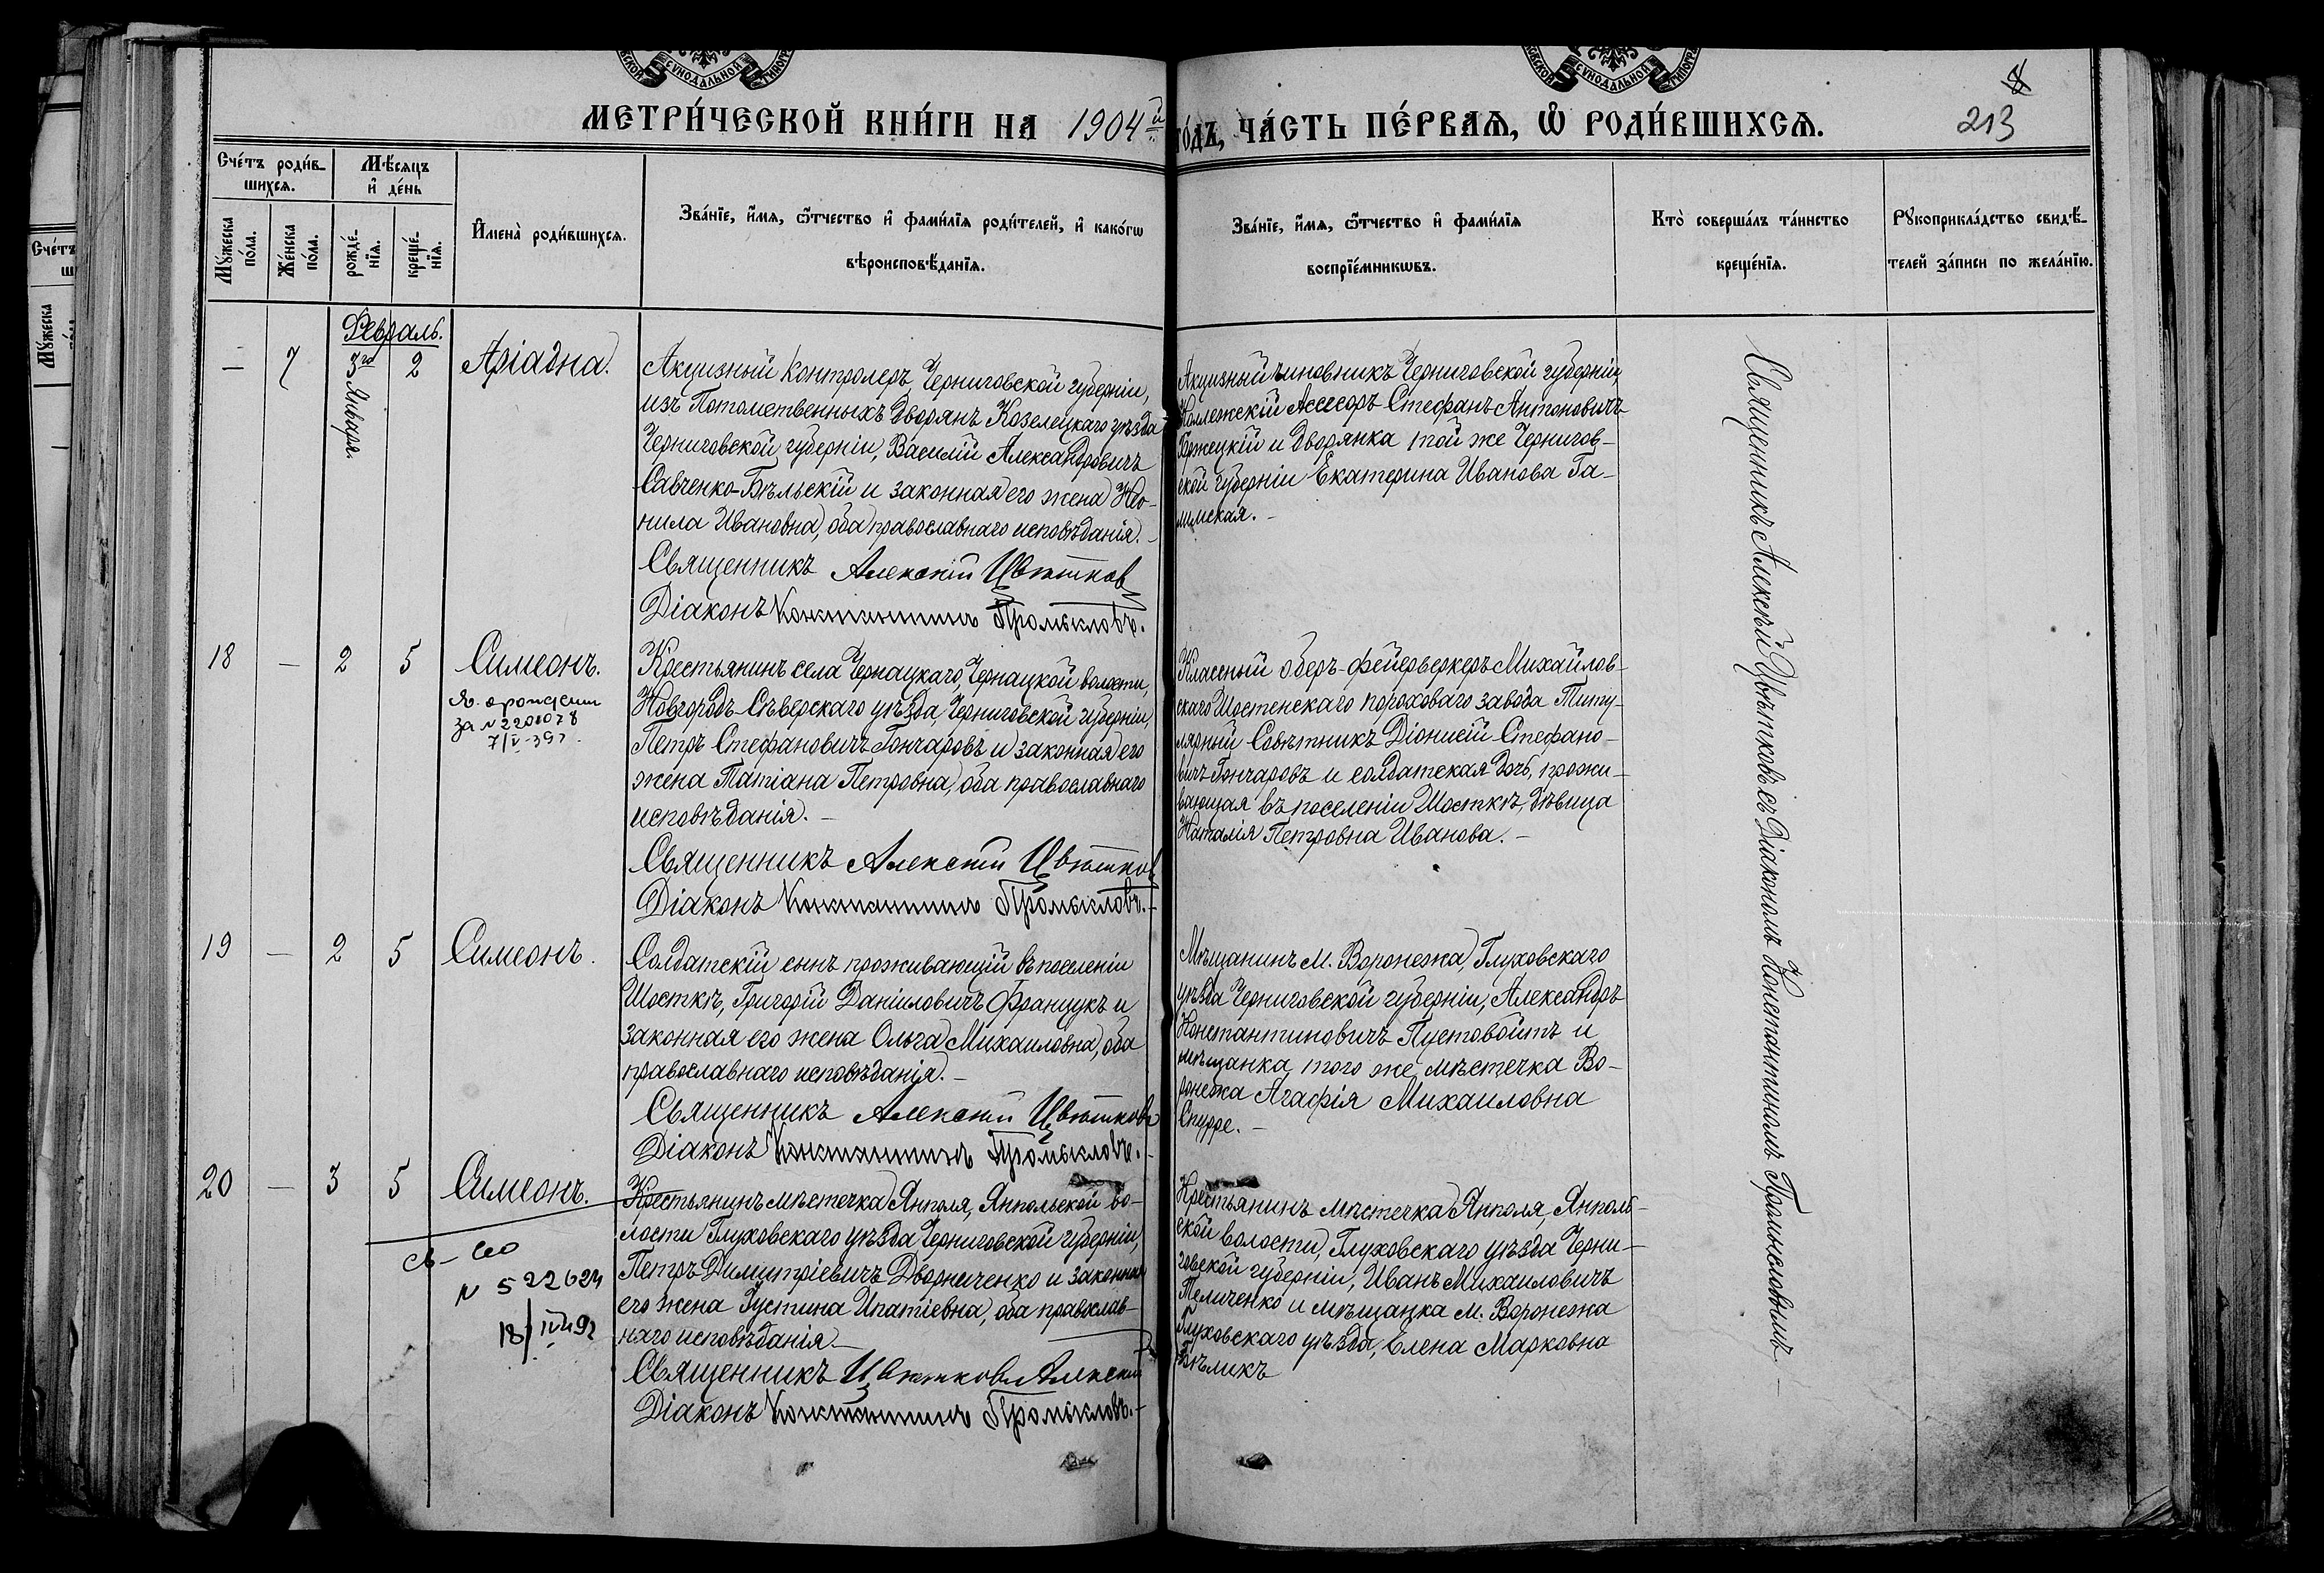 МЕТРИ́ЧЕСКОЙ КНИ́ГИ НА 1904й
ГО́ДЪ, ЧА́СТЬ ПЕ́РВАѦ, Ѡ РОДИ́ВШИХСѦ.
8
213
Сче́тъ роди́в-
шихсѧ.
Мѣ́сѧцъ
и де́нь
Мꙋ́жеска
по́ла.
Же́нска
по́ла.
рожде́-
нїѧ.
креще́-
нїѧ.
И҆мена̀ роди́вшихсѧ.
Зва́нїе, и҆́мѧ, ѻ҆́тчество и҆ фами́лїѧ роди́телей, и҆ како́гѡ
вѣроисповѣ́данїѧ.
Зва́нїе, и҆́мѧ, ѻ҆́тчество и҆ фами́лїѧ
воспрїе́мникѡвъ.
Кто̀ соверша́лъ та́инство
креще́нїѧ.
Рꙋкоприкла́дство свидѣ́-
телей за́писи по жела́нїю.
Февраль.
— 7 3го Января. 2 Аріадна.
Акцизный Контролеръ Черниговской губерніи,
изъ Потомственныхъ Дворянъ Козелецкаго уѣзда
Черниговской губерніи, Василій Александровичъ
Савченко-Бѣльскій и законная его жена Нео-
нила Ивановна, оба православнаго исповѣданія. -
Священникъ Алексій Цвѣтков
Діаконъ Константинъ Промысловъ.
Акцизный чиновникъ Черниговской губерніи,
Коллежскій Ассесоръ Стефанъ Антоновичъ
Бржецкій и Дворянка той же Чернигов-
ской губерніи Екатерина Иванова Га-
лимская. -
18 — 2 5 Симеонъ.
за № 2201078
Крестьянинъ села Чернацкаго, Чернацкой волости,
Новгородъ-Сѣверскаго уѣзда, Черниговской губерніи,
Петръ Стефановичъ Гончаровъ и законная его
жена Татіана Петровна, оба православнаго
исповѣданія. -
Священникъ Алексій Цвѣтков
Діаконъ Константинъ Промысловъ. -
Классный оберъ-фейерверкеръ Михайлов-
скаго Шостенскаго пороховаго завода Титу-
лярный Совѣтникъ Діонисій Стефано-
вичъ Гончаровъ и солдатская дочь, прожи-
вающая въ поселеніи Шосткѣ, дѣвица
Наталія Петровна Иванова. -
19 — 2 5 Симеонъ.
Солдатскій сынъ проживающій въ поселеніи
Шосткѣ, Григорій Даніиловичъ Францукъ и
законная его жена Ольга Михаиловна, оба
православнаго исповѣданія. -
Священникъ Алексій Цвѣтковъ
Діаконъ Константинъ Промысловъ. -
Мѣщанинъ м. Воронежа, Глуховскаго
уѣзда Черниговской губерніи, Александръ
Константиновичъ Пустовойтъ и
мѣщанка того же мѣстечка Во-
ронежа Агафія Михаиловна
20 — 3 5 Симеонъ.
св-во
№ 522624
Крестьянинъ мѣстечка Янполя, Янпольской во-
лости Глуховскаго уѣзда Черниговской губерніи,
Петръ Димитріевичъ Дворниченко и законная
его жена Іустина Ипатіевна, оба православ-
наго исповѣданія. -
Священникъ Цвѣтковъ Алексій
Діаконъ Константинъ Промысловъ. -
Крестьянинъ мѣстечка Янполя, Янполь-
ской волости, Глуховскаго уѣзда Черни-
говской губерніи, Иванъ Михаиловичъ
Теличенко и мѣщанка м. Воронежа
Глуховскаго уѣзда, Елена Марковна
Бѣликъ
Священникъ Алексѣй Цвѣтковъ съ Діакономъ Константиномъ Промысловымъ -